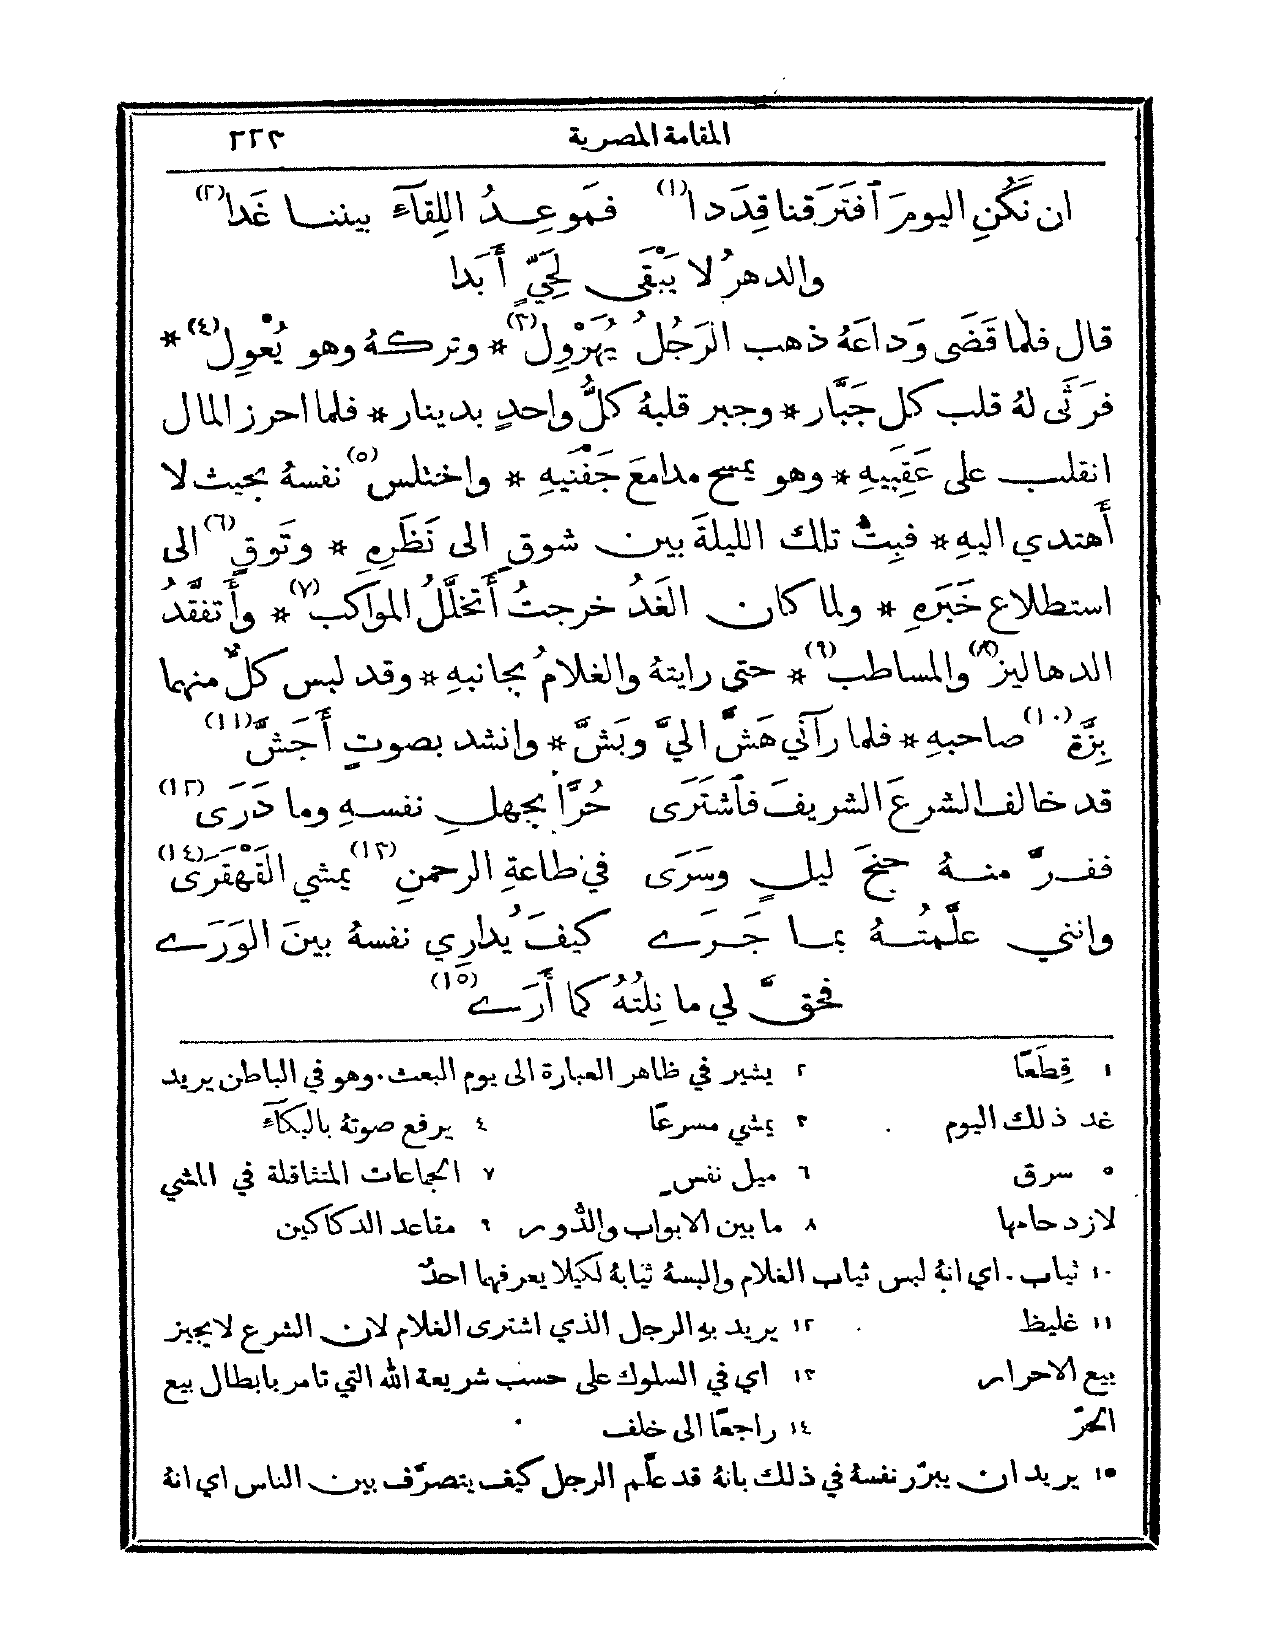 المقامة المصرية ٢٢٣
ان نَكُنِ اليومَ ٱفتَرَقنا قِدَدا(١) فمَوعِدُ اللِقآءَ بيننا غَدا(٢)
والدهرُ لا يَبْقَى لِحَيٍّ أَبَدا
قال فلمَّا قَضَى وَداعَهُ ذهب الرَجُلُ يُهَرْوِلُ(٣)* وتركهُ وهو يُعْوِل(٤)*
فرَثَى لهُ قلب كل جَبَّار* وجبر قلبهُ كلُّ واحدٍ بدينار* فلما احرز المال
انقلب على عَقِبَيهِ* وهو يمسح مدامعَ جَفْنَيهِ* واختلس(٥) نفسهُ بحيث لا
أَهتدي اليهِ* فبِتُّ تلك الليلةَ بين شوقٍ الى نَظَرِهِ* وتَوقٍ(٦) الى
استطلاع خَبَرِهِ* ولما كان الغَدُ خرجتُ أَتخلَّلُ المواكَب(٧)* وأَتفقَّدُ
الدهاليز(٨) والمساطب(٩)* حتى رايتهُ والغلامُ بجانبهِ* وقد لبس كلٌّ منهما
بِزَّة(١٠) صاحبهِ* فلما رآني هَشَّ اليَّ وبَشَّ* وانشد بصوتٍ أَجَشَّ(١١)
قد خالف الشرعَ الشريفَ فٱشتَرَى حُرًّا بجهلِ نفسهِ وما دَرَى(١٢)
ففرَّ منهُ جنحَ ليلٍ وسَرَى في طاعةِ الرحمنِ(١٣) يمشي القَهْقَرَى(١٤)
وانني علَّمتُهُ بما جَرَے كيفَ يُدارِي نفسهُ بينَ الوَرَے
فحقَّ لي ما نِلتُهُ كما أَرَے(١٥)
١ قِطَعًا ٢ يشير في ظاهر العبارة الى يوم البعث. وهو في الباطن يريد
غد ذلك اليوم ٣ يمشي مسرعًا ٤ يرفع صوتهُ بالبكآء
٥ سرق ٦ ميل نفس ٧ الجماعات المتثاقلة في المشي
لازدحامها ٨ ما بين الابواب والدُّور ٩ مقاعد الدكاكين
١٠ ثياب. اي انهُ لبس ثياب الغلام والبسهُ ثيابهُ لكيلا يعرفهما احدٌ
١١ غليظ ١٢ يريد بهِ الرجل الذي اشترى الغلام لان الشرع لا يجيز
بيع الاحرار ١٣ اي في السلوك على حسب شريعة الله التي تامر بابطال بيع
الحرّ ١٤ راجعًا الى خلف
١٥ يريد ان يبرّر نفسهُ في ذلك بانهُ قد علّم الرجل كيف يتصرَّف بين الناس اي انهُ